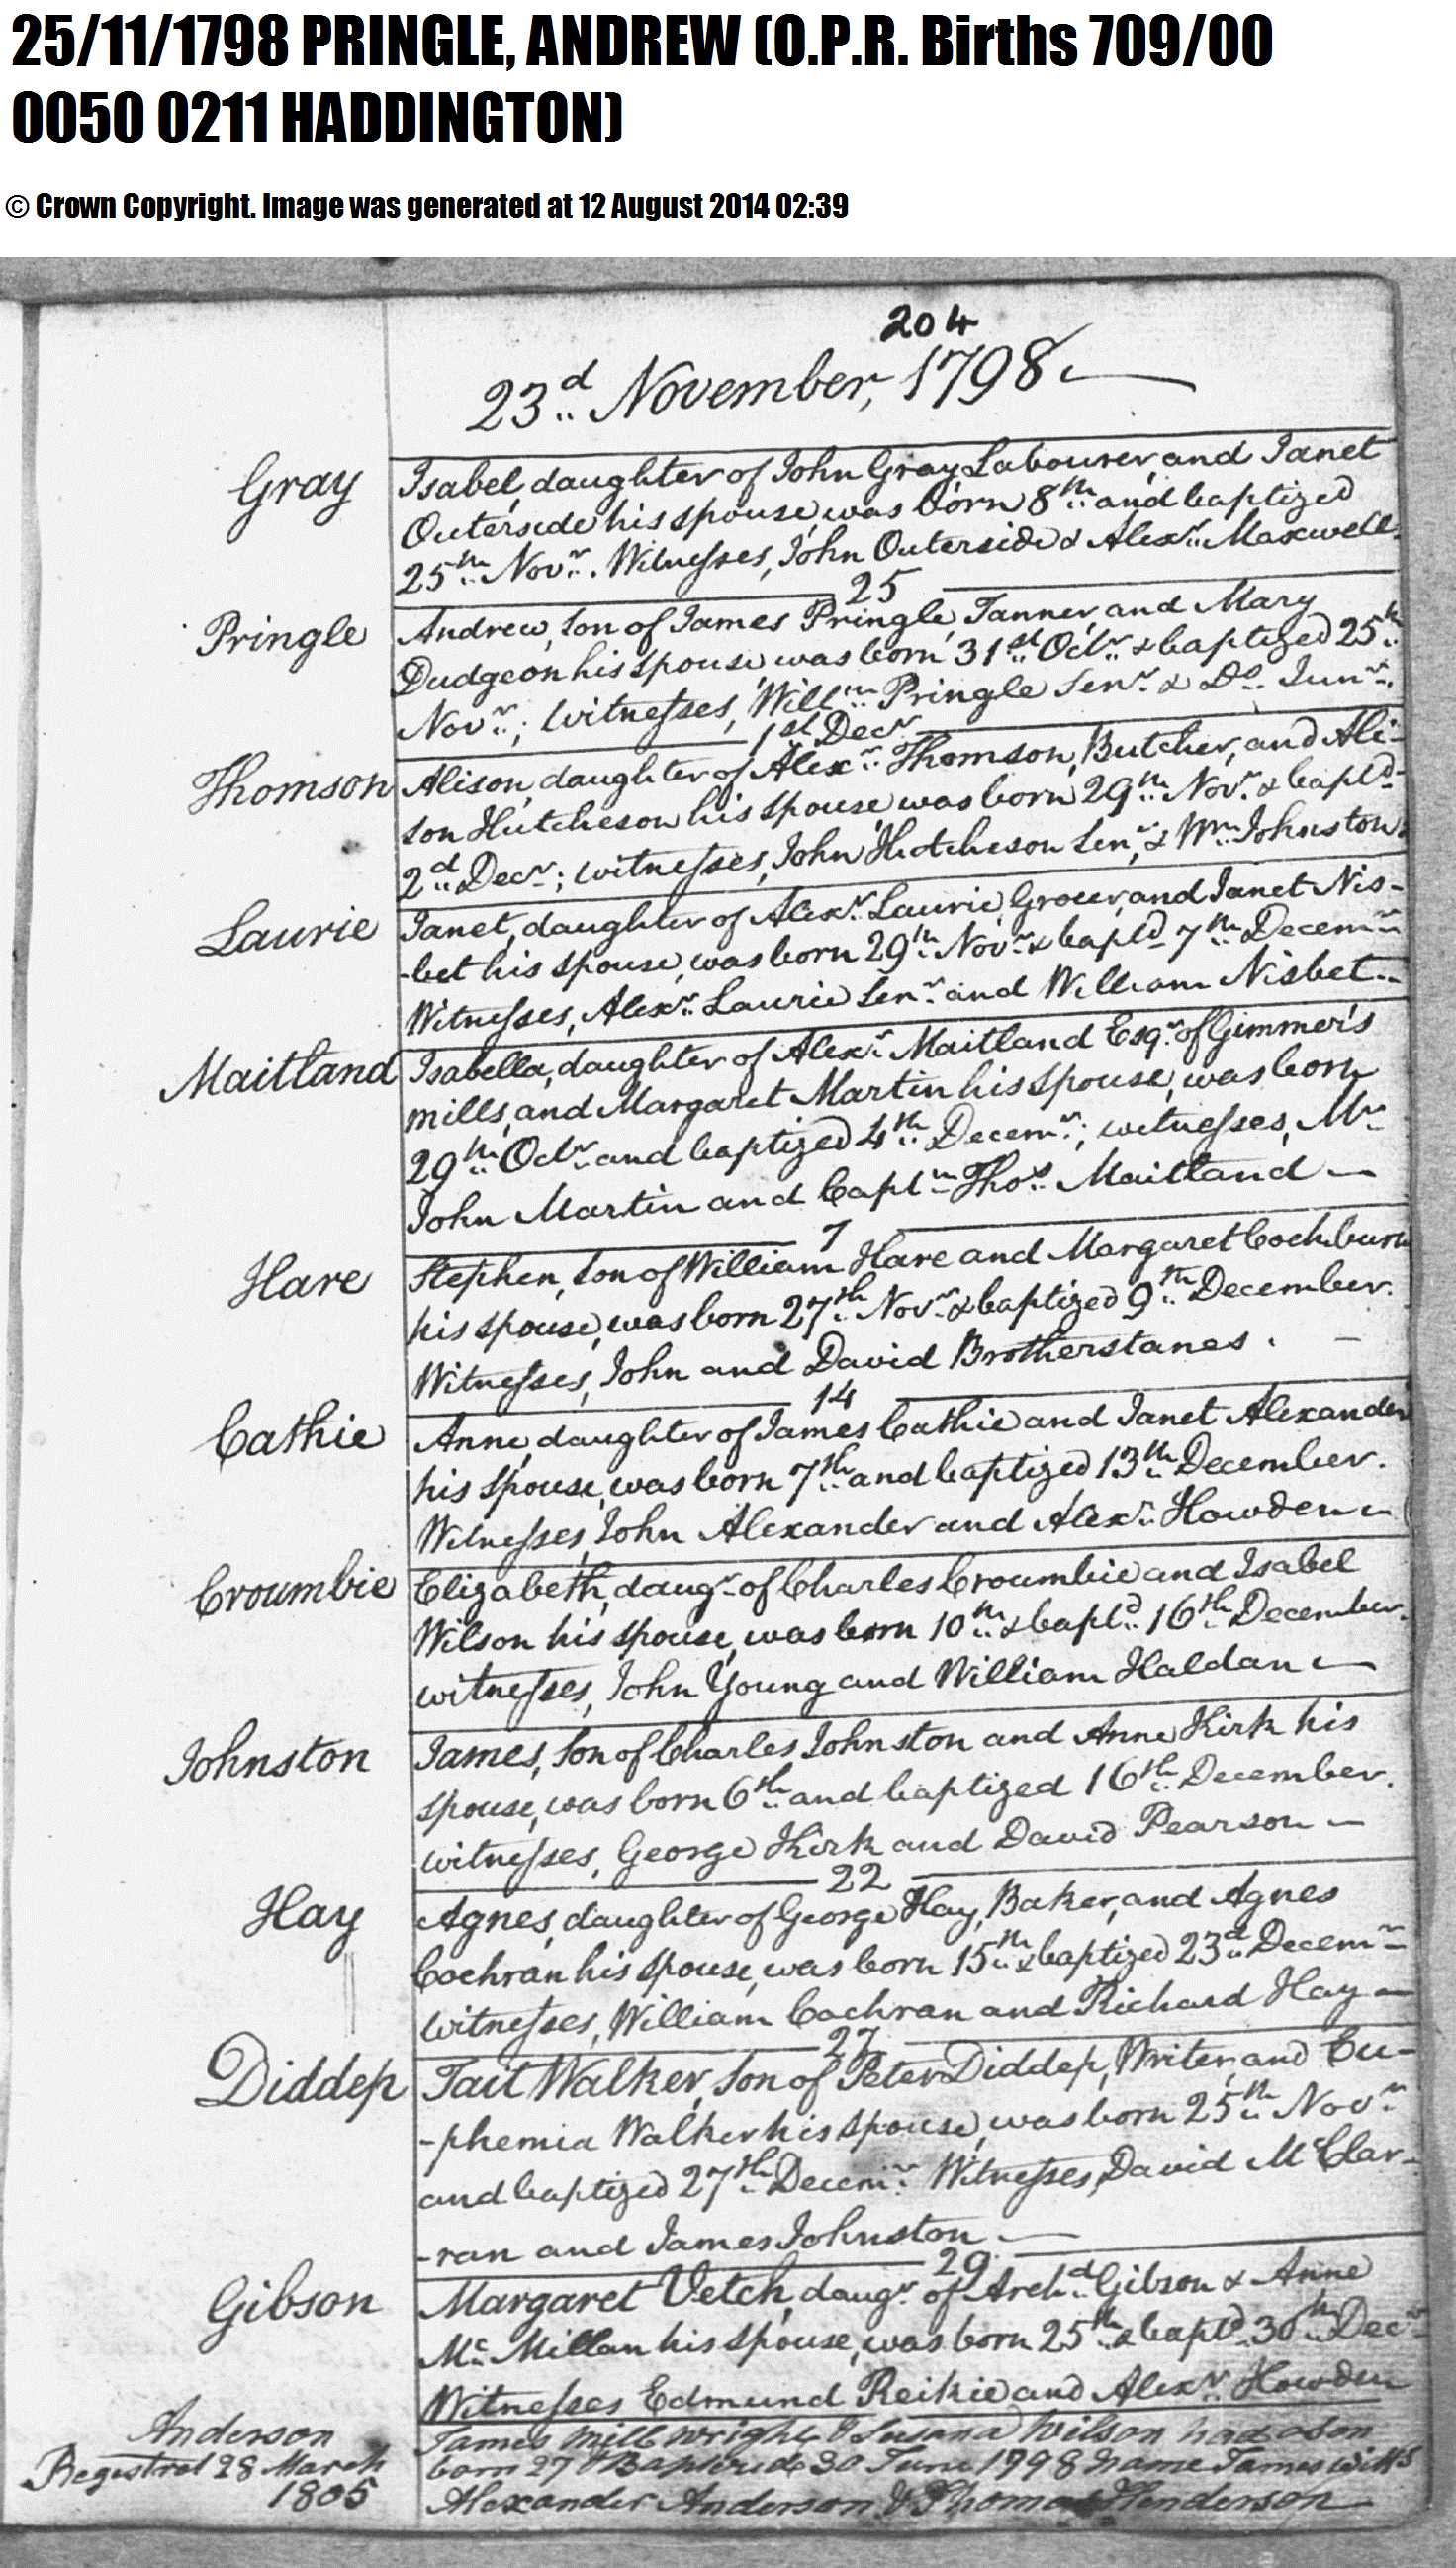 25/11/1798 PRINGLE, ANDREW (O.P.R. Births 709/00
0050 0211 HADDINGTON)
© Crown Copyright. Image was generated at 12 August 2014 02:39
204
23d November, 1798
Gray
Isabel, daughter of John Gray, Labourer, and Janet
Outerside his spouse, was born 8th and baptized
25th Novr. Witnesses, John Outerside & Alexr. Maxwell.
25
Pringle
Andrew, son of James Pringle, Tanner, and Mary
Dudgeon his spouse, was born 31st Octr. & baptized 25th
Novr.; witnesses, Willm Pringle Senr. & Do. Junr.
1st Decr.
Thomson
Alison, daughter of Alexr. Thomson, Butcher, and Ali-
son Hutcheson his spouse, was born 29th Novr. & bapt'd
2d Decr.; witnesses, John Hutcheson Senr, & Wm Johnston.
Laurie
Janet, daughter of Alexr. Laurie, Grocer, and Janet Nis-
-bet his spouse, was born 29th Novr & bapt'd 7th Decemr
Witnesses, Alexr. Laurie Senr. and William Nisbet
Maitland
Isabella, daughter of Alexr. Maitland Esqr. of Gimmer's
mills, and Margaret Martin his spouse, was born
29th Octr. and baptized 4th Decemr.; witnesses, Mr
John Martin and Captn Thos. Maitland
7
Hare
Stephen, son of William Hare and Margaret Cockburn
his spouse, was born 27th Novr. & baptized 9th December.
Witnesses, John and David Brotherstanes.
14
Cathie
Anne, daughter of James Cathie and Janet Alexander
his spouse, was born 7th and baptized 13th December.
Witnesses, John Alexander and Alexr. Howden
Croumbie
Elizabeth, daugr. of Charles Croumbie and Isabel
Wilson his spouse, was born 10th & bapt'd 16th December.
witnesses, John Young and William Haldan
Johnston
James, son of Charles Johnston and Anne Kirk his
spouse, was born 6th and baptized 16th December.
witnesses, George Kirk and David Pearson
22
Hay
Agnes, daughter of George Hay, Baker, and Agnes
Cochran his spouse, was born 15th & baptized 23d Decemr
witnesses, William Cochran and Richard Hay
27
Diddep
Tait Walker, son of Peter Diddep, Writer, and Eu-
-phemia Walker his spouse, was born 25th Novr
and baptized 27th Decemr. Witnesses, David McClar-
-ran and James Johnston
29
Gibson
Margaret Vetch, daugr. of Archd. Gibson & Anne
Mc Millan his spouse, was born 25th & bapt'd 30th Decr
Witnesses Edmund Reikie and Alexr. Howden
Anderson
Registred 28 March
1805
James mill wright & Susana Wilson had a son
born 27 & Baptized 30 June 1798 name James witts
Alexander Anderson & Thomas Henderson